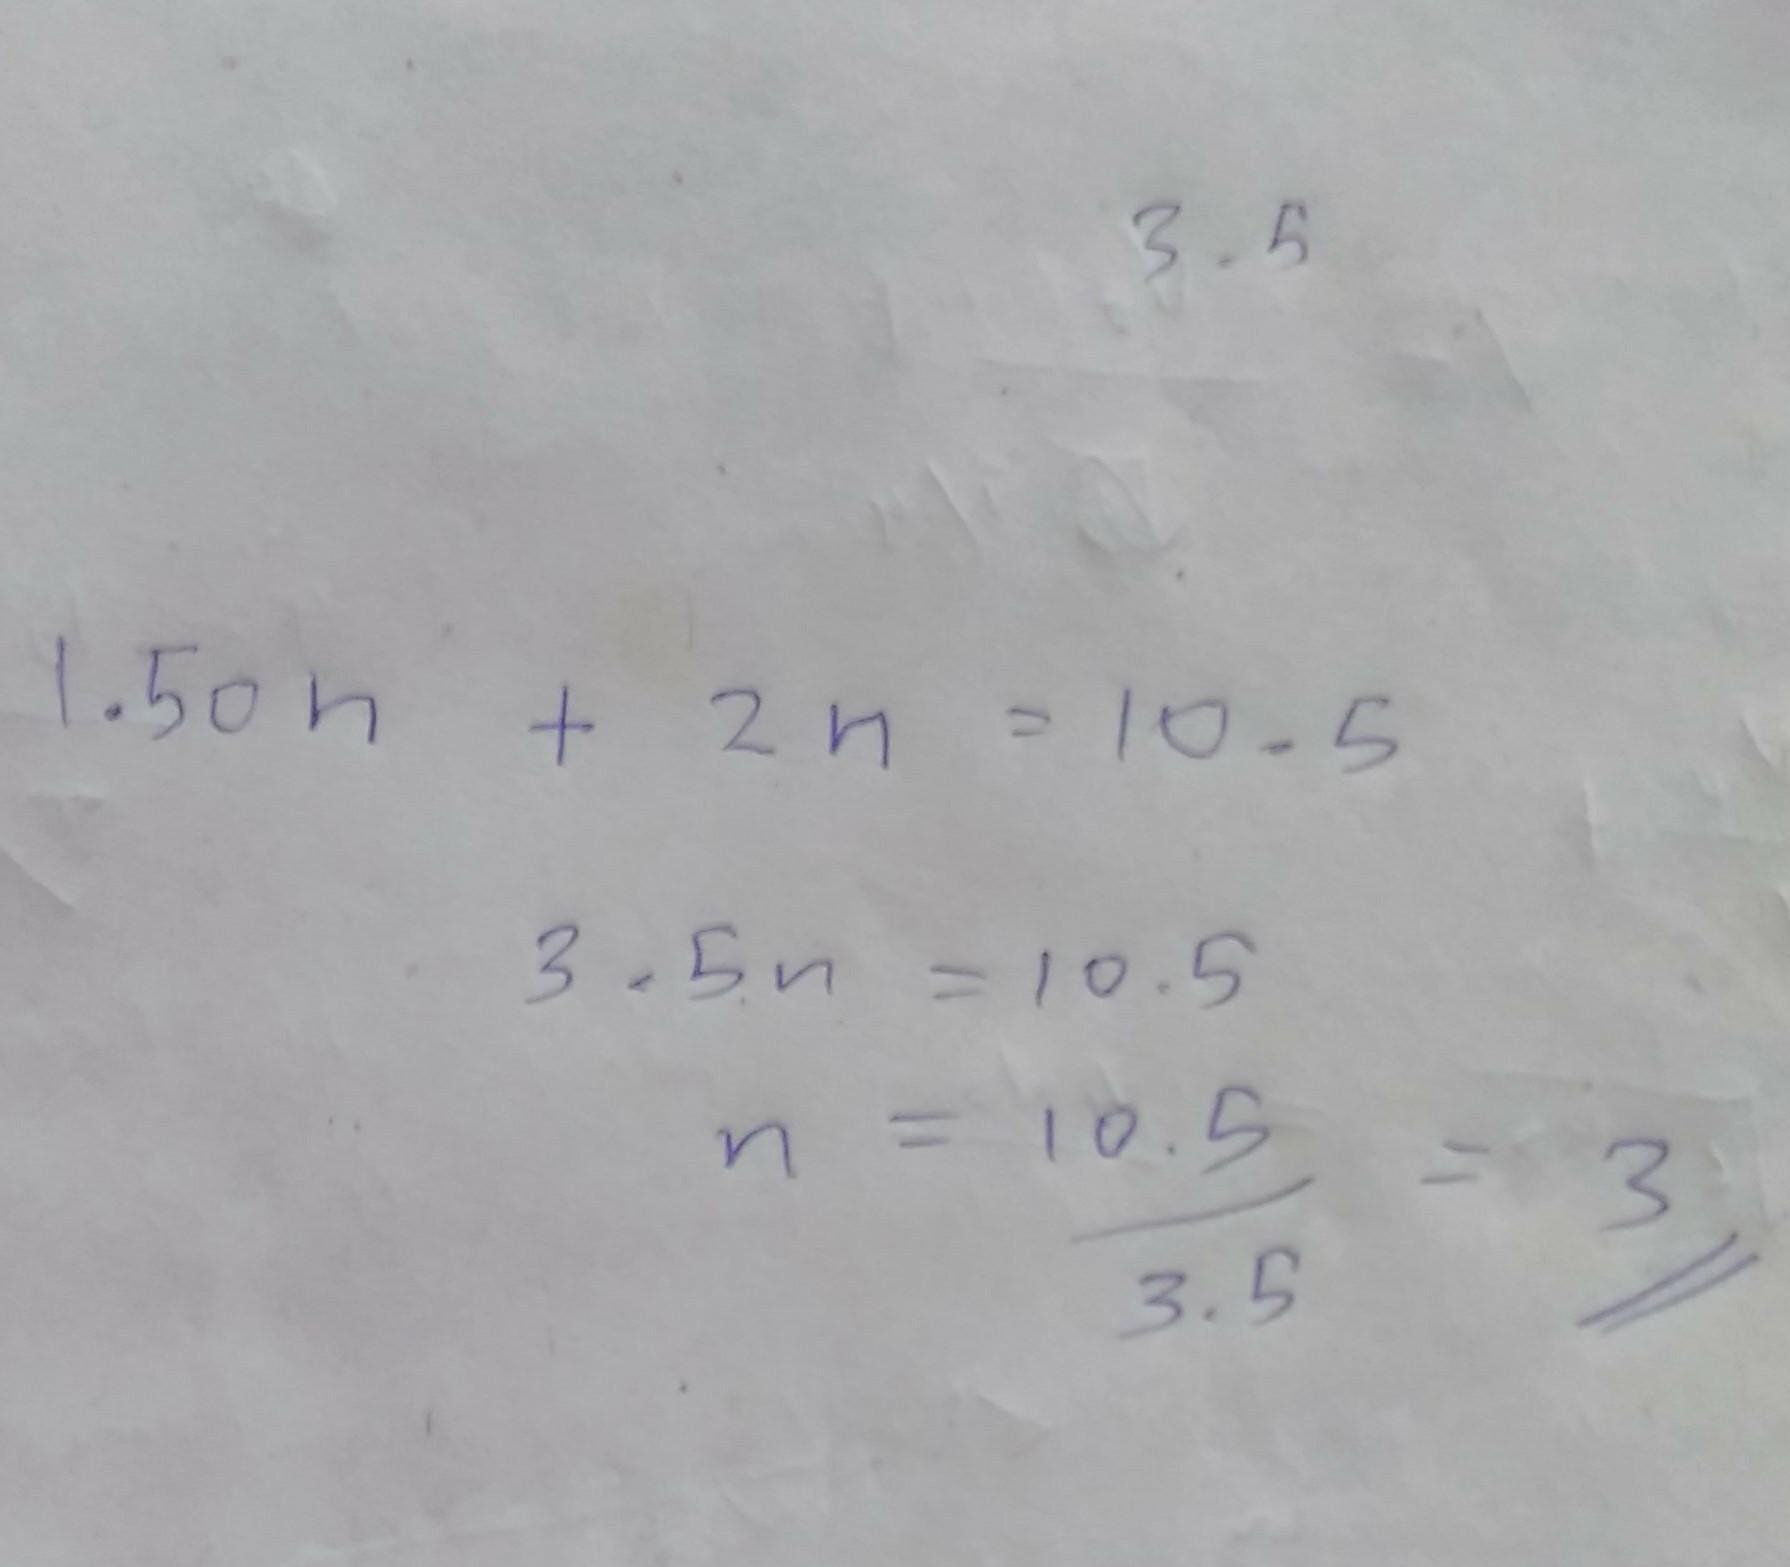 3.5
1.50n + 2n = 10.5
3.5n = 10.5
n = 10.5/3.5 = 3